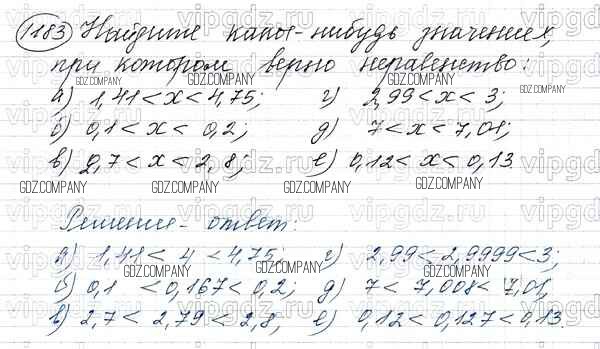 1183 Найдите какое-нибудь значение x,
при котором верно неравенство:
а) 1,41 < x < 4,75; г) 2,99 < x < 3;
б) 0,1 < x < 0,2; д) 7 < x < 7,01;
в) 2,7 < x < 2,8; е) 0,12 < x < 0,13.
Решение - ответ:
а) 1,41 < 4 < 4,75; г) 2,99 < 2,9999 < 3;
б) 0,1 < 0,167 < 0,2; д) 7 < 7,008 < 7,01;
в) 2,7 < 2,79 < 2,8, е) 0,12 < 0,127 < 0,13.